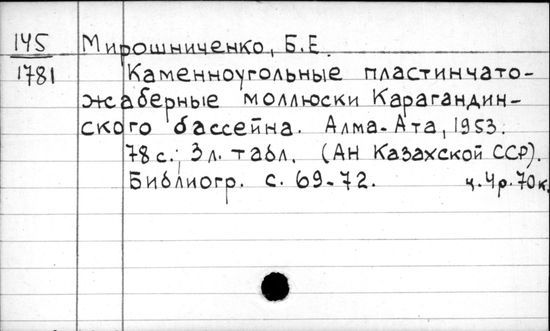 145 Мирошниченко, Б.Е.
1781 Каменноугольные пластинчато-
жаберные моллюски Карагандин-
ского бассейна. Алма-Ата, 1953.
78 с.; 3 л. табл. (АН Казахской ССР).
Библиогр. с. 69-72. ц. 4 р. 70 к.